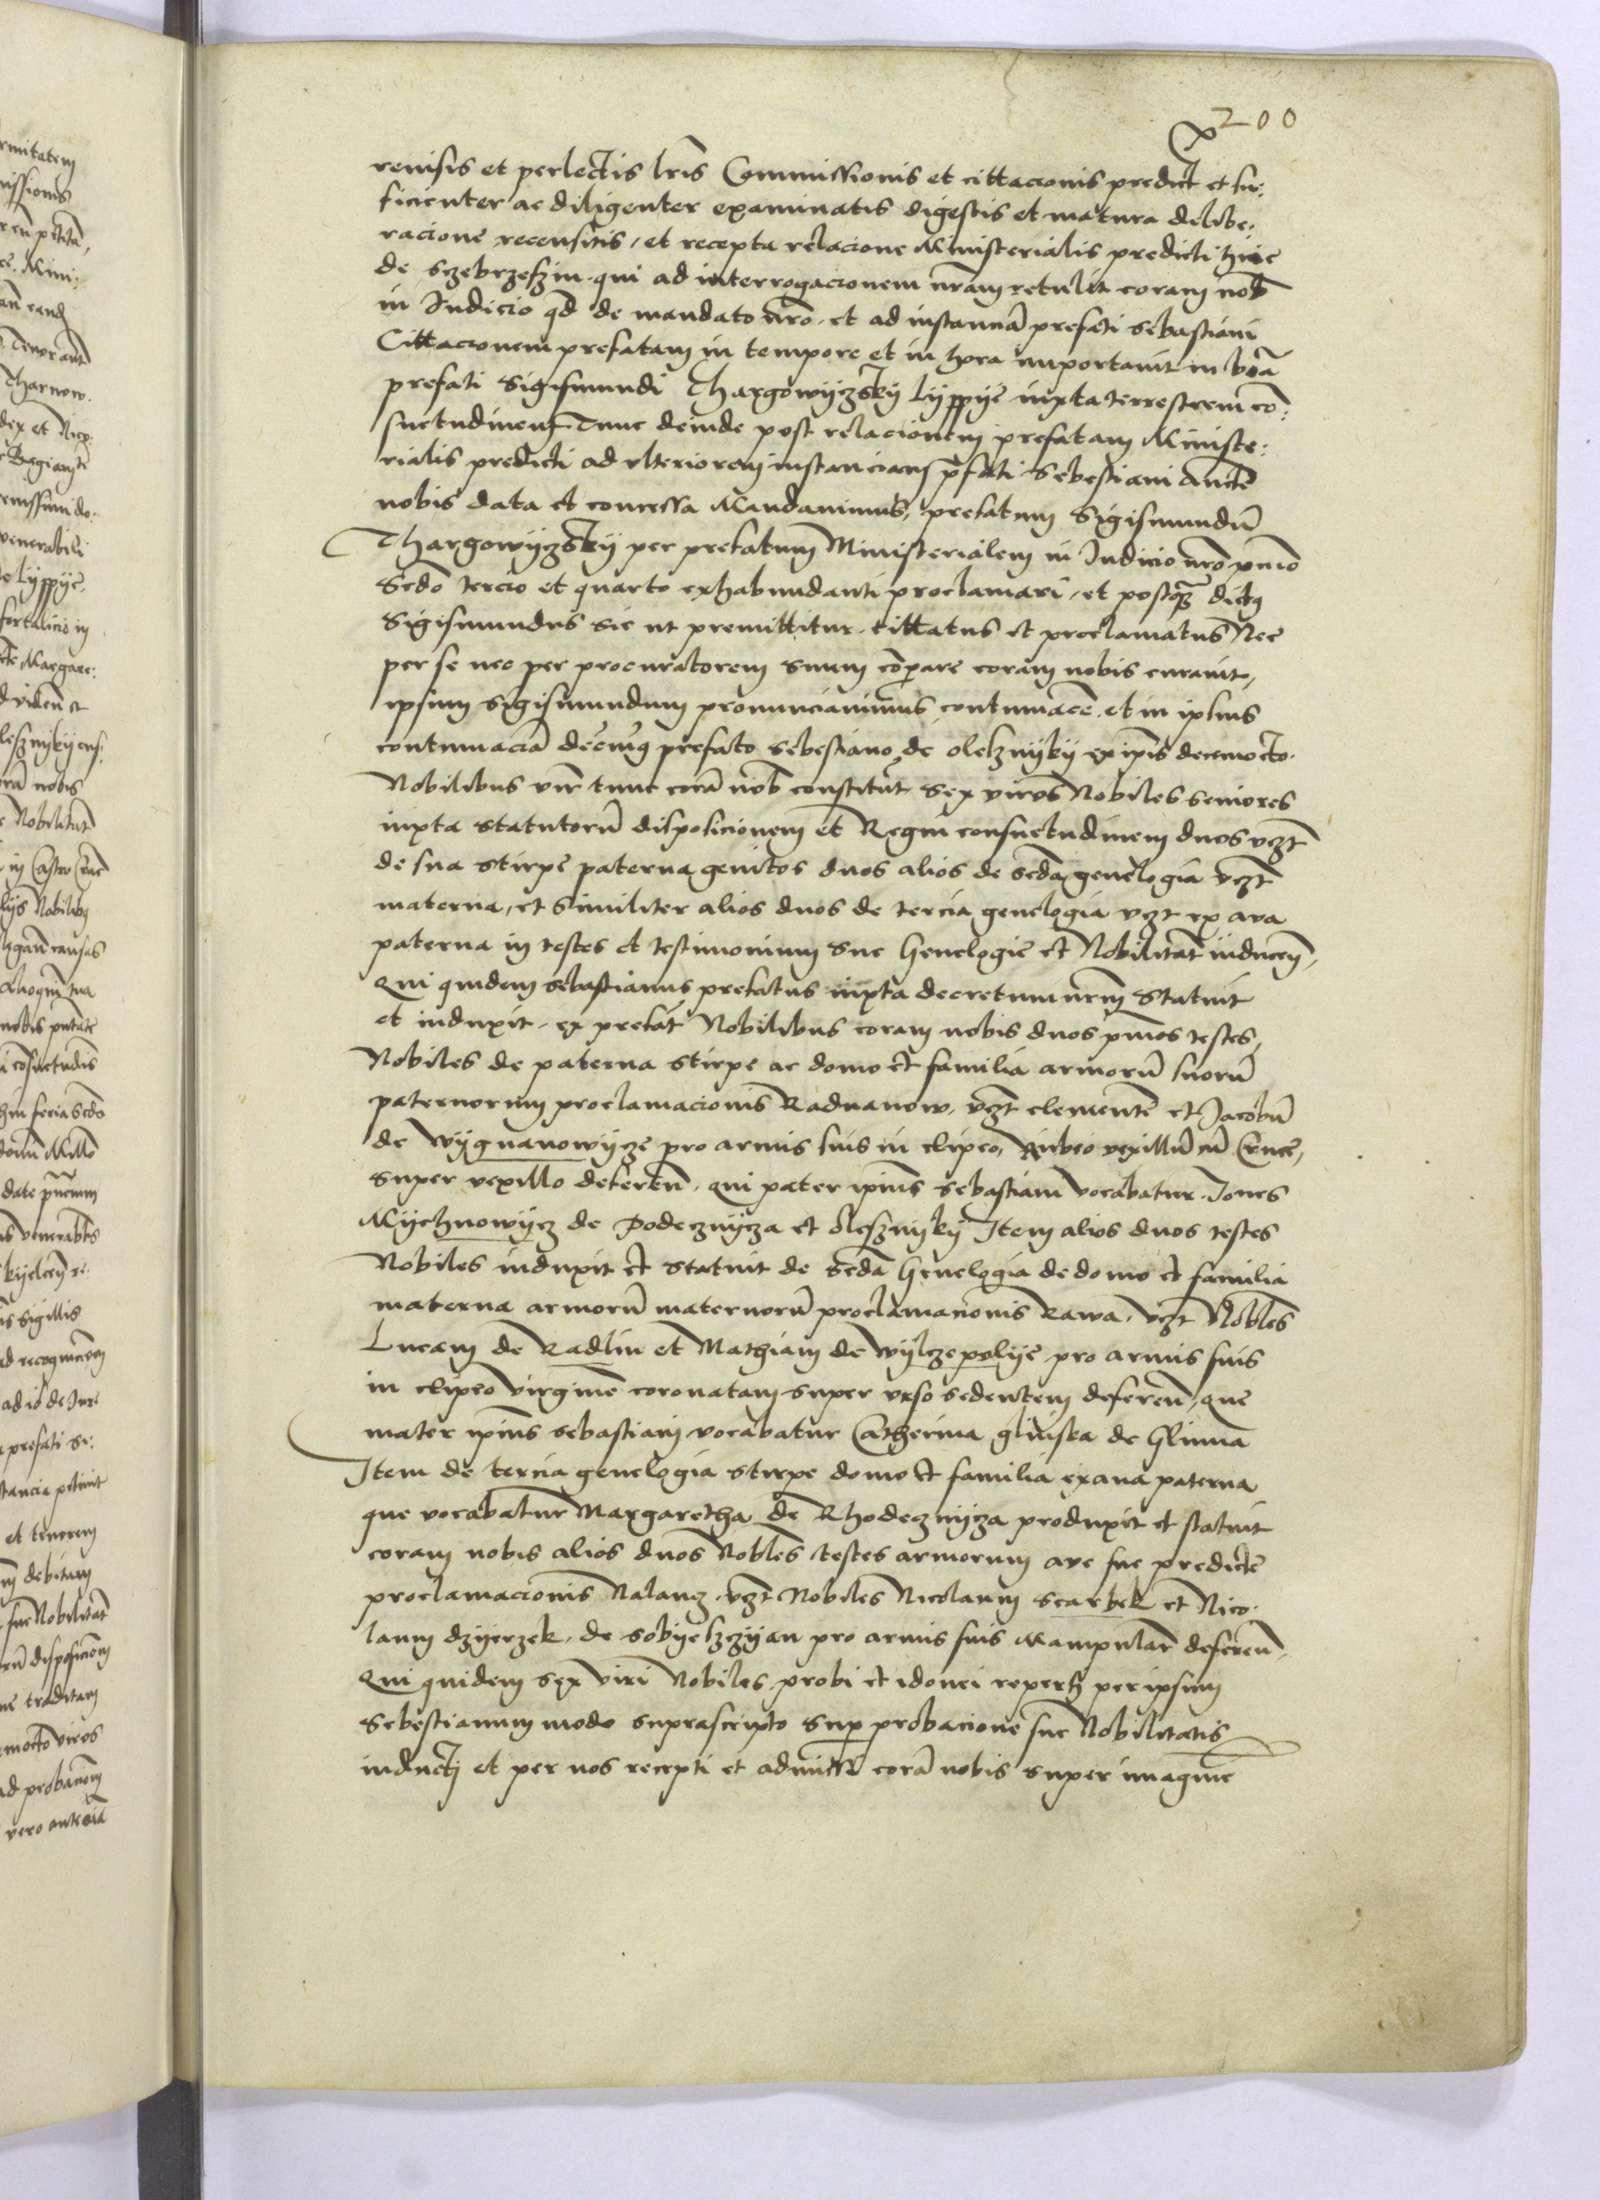 200
revisis et perlectis lris Commissionis et cittacionis predict et su:
ficienter ac diligenter examinatis digestis et matura delibe:
racione recensitis, et recepta relacione Ministerialis predicti
de Sczebrzeszin qui ad interrogacionem nram retulit coram nob
in Iudicio qd de mandato nro et ad instancia prefati Sebastiani
Cittacionem prefatam in tempore et in hora importavit in
prefati Sigismundi Thargowyczsky Lyppye iuxta terrestrem co:
suetudinem Tunc deinde post relacionem prefatam Ministe:
rialis predicti ad ulteriorem instanciam pfati Sebestiani Aucte
nobis data et concessa Mandavimus, prefatum Sigismundu
Thargowyczsky per prefatum Ministerialem in Iudicio nro pmo
Sedo tercio et quarto exhabundanti proclamari, et postqz dictq
Sigismundus sic ut premittitur cittatus et proclamatus Nec
per se nec per procuratorem suum copare coram nobis curavit,
ipsum Sigismundum pronunciavimus contumace. et in ipsius
contumacia decrevimq prefato Sebestiano de Olesznyky ex ipis decemocto
Nobilibus vir tunc cora nob constitut Sex viros Nobiles seniores
iuxta statutoru disposicionem et Regni consuetudinem duos vczt
de sua stirpe paterna genitos duos alios de seda genelogia vczt
materna, et similiter alios duos de tercia genelogia vczt ex ava
paterna in testes et testimonium sue Genelogie et Nobilitat inducen,
Qui quidem Sebastianus prefatus iuxta decretum nrm statuit
et induxit ex prefat Nobilibus coram nobis duos pmos testes,
Nobiles de paterna stirpe ac domo et familia armoru suoru
paternorum proclamacionis Radwanow, vczt clemente et Jacobu
de Wygnanowycze pro armis suis in clipeo, Rubeo vexillu cu Cruce,
super vexillo deferen, qui pater ipius Sebastiani vocabatur Iones
Mychnowycz de Podecznycza et Olesznyky Item alios duos testes
Nobiles induxit et statuit de seda Genelogia de domo et familia
materna armoru maternoru proclamacionis Rawa, vczt Nobles
Lucam de Radlin et Mathiam de Wylczepolye pro armis suis
in clipeo virgine coronatam super urso sedentem deferen, que
mater ipius Sebastiani vocabatur Catherina glinska de Glinna
Item de tercia genelogia stirpe domo et familia ex ava paterna
que vocabatur Margaretha de Rhodecznycza produxit et statuit
coram nobis alios duos Nobles testes armorum ave sue predicte
proclamacionis Nalancz vczt Nobiles Nicolaum Scarbek et Nico
laum dzyerzek de Sobyesczyan pro armis suis Mampular deferen,
Qui quidem sex viri Nobiles probi et idonei reperti per ipsum
Sebestianum modo suprascripto sup probacione sue Nobilitatis
inducti et per nos recepti et admissi cora nobis super imagine